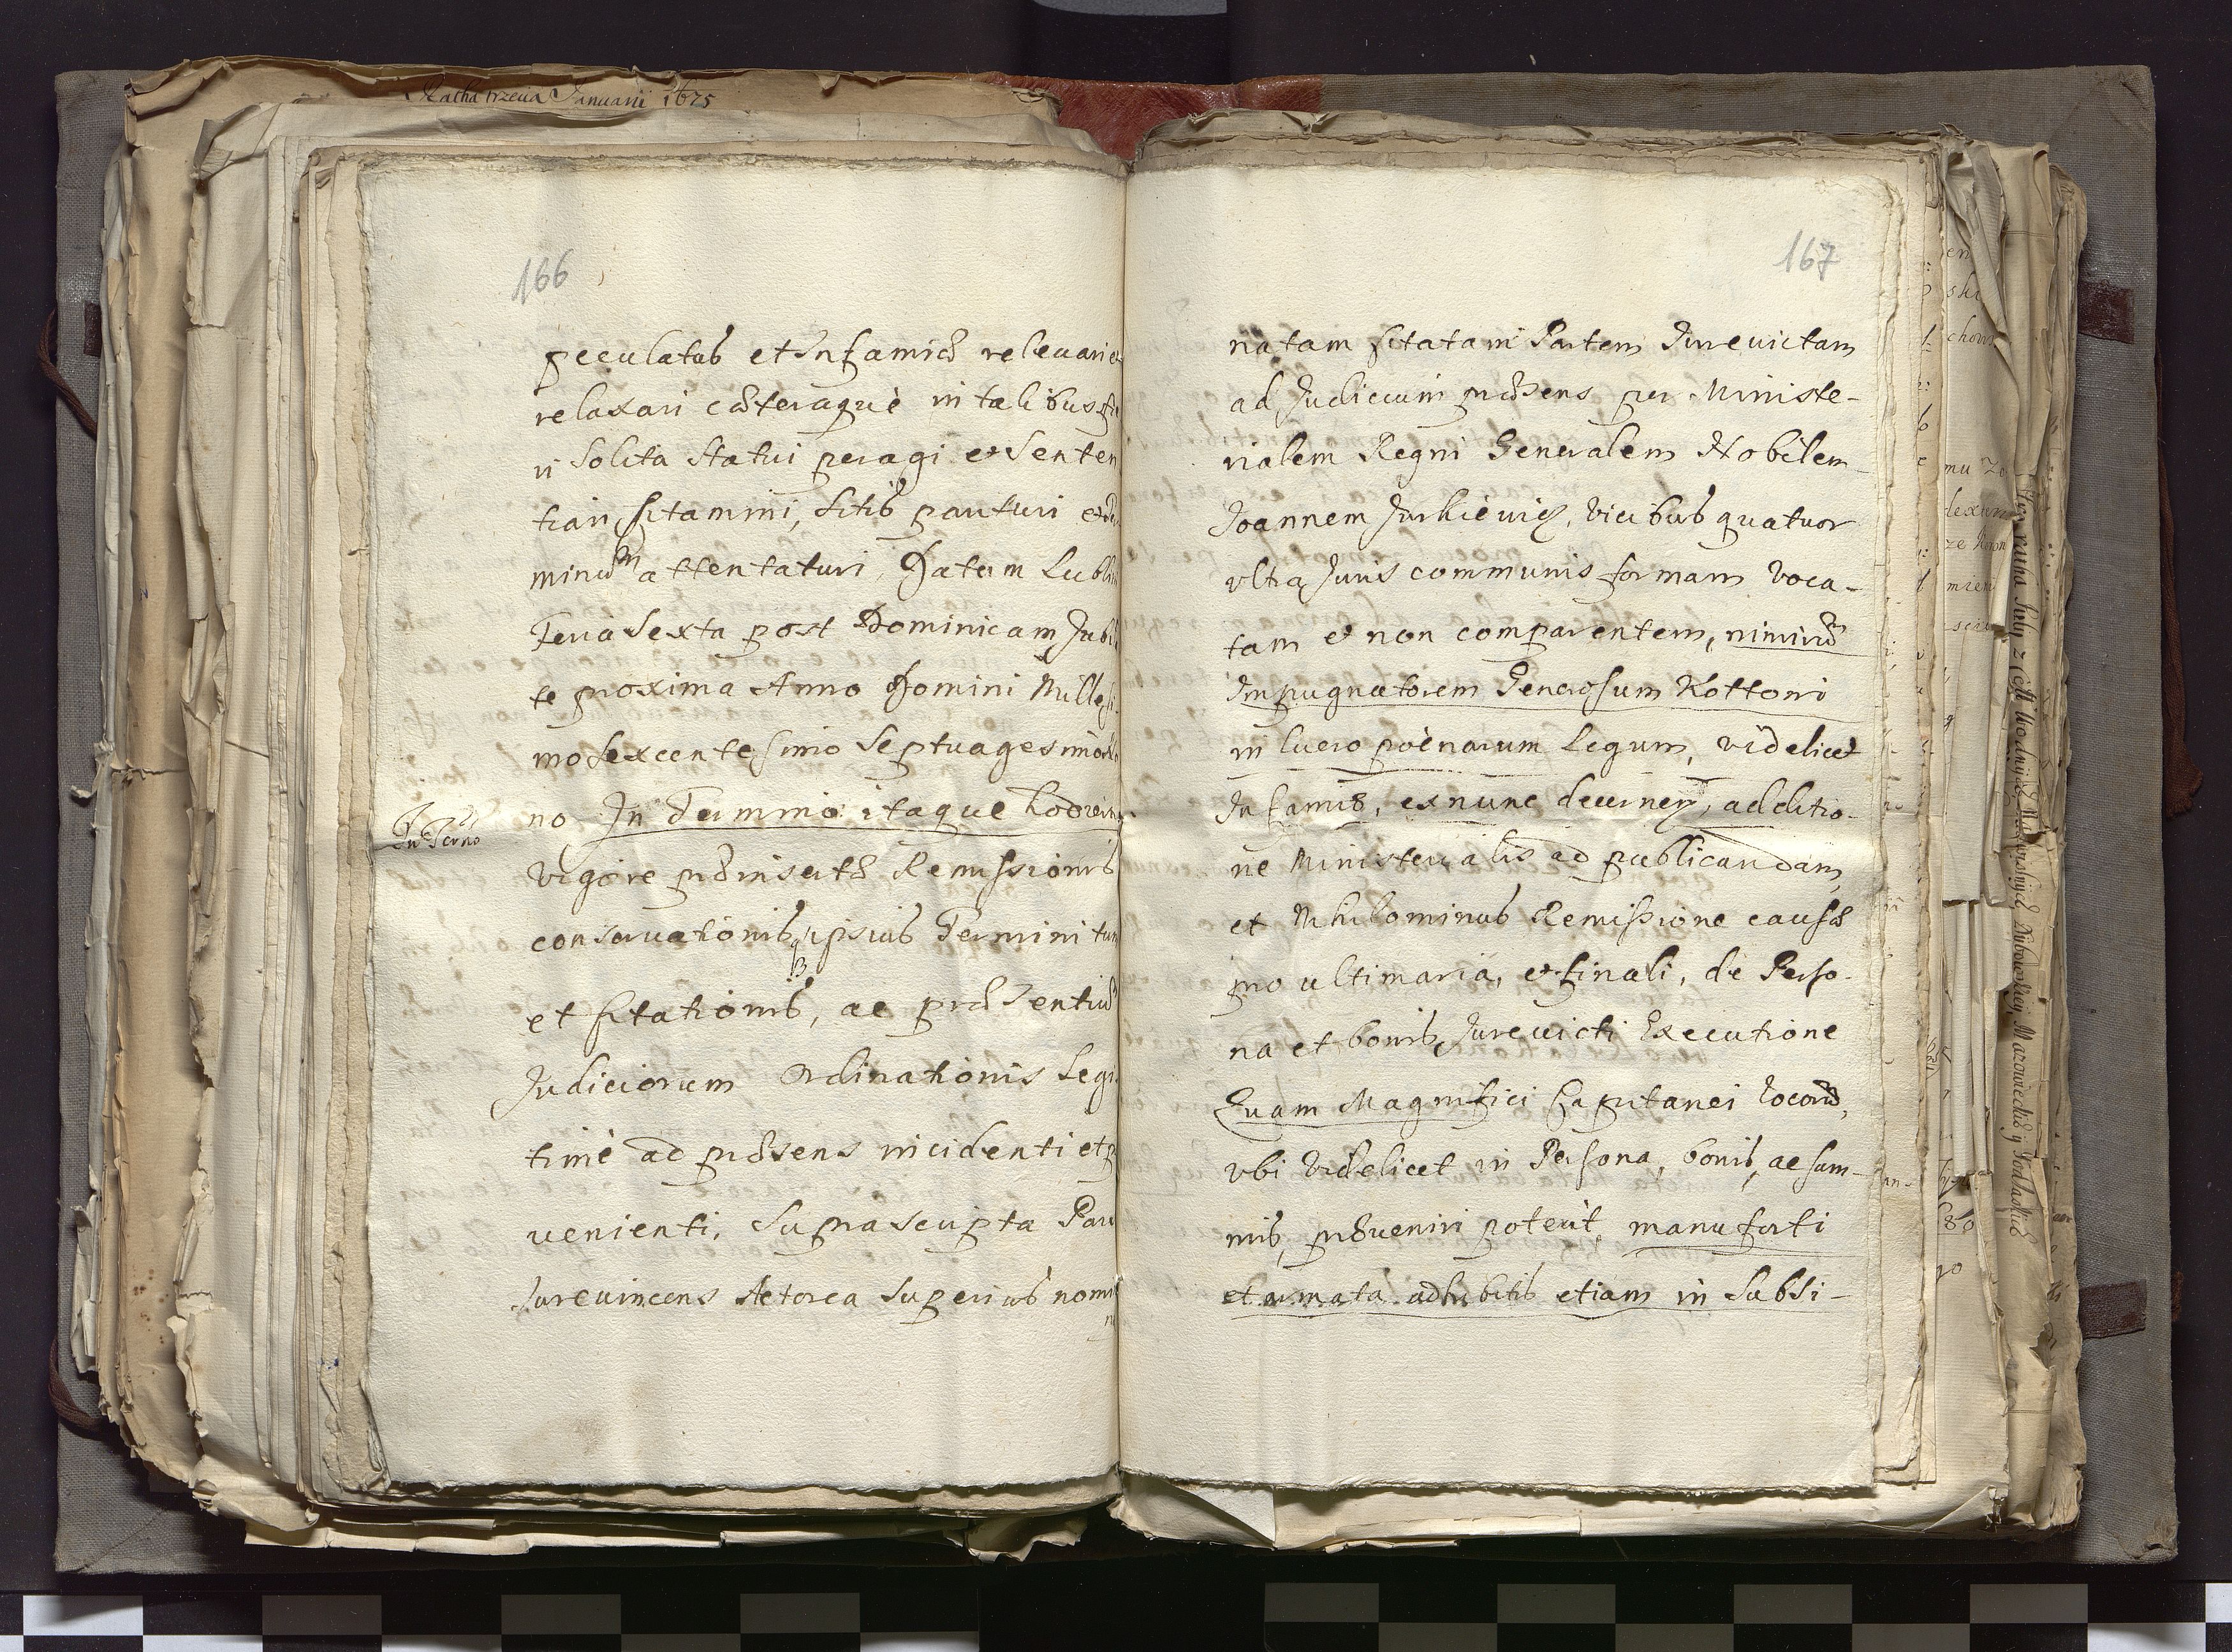 Ratha trzecia Januarii 1675
166
peculatus et Infamiæ relevari et
relaxari cæteraque in talibus fie
ri solita statui peragi et senten
tiari citamini, sitis parituri et ter
minum attentaturi, Datum Lubli
Feria Sexta post Dominicam Jubi
te proxima Anno Domini Mille si
mo sexcentesimo Septuagesimo
no In Termino itaque hodierno
In Terno
vigore præinsertæ Remissionis
conservationisq ipsius Termini tum
et citationis, ac præsentium
Judiciorum Ordinationis legi
time ad præsens incidenti et p
venienti, Suprascripta Pars
Jurevincens Actorea Superius nomi
na
167
natam citatam Partem Jurevictam
ad Judicium præsens per Ministe-
rialem Regni Generalem Nobilem
Joannem Jurkiewicz, vicibus quatuor
ultra Juris communis formam voca-
tam et non comparentem, nimirum
Impugnatorem Generosum Kottoni
in lucro pœnarum Legum, videlicet
Infamiæ, ex nunc decernen, additio-
ne Ministerialis ad publicandam,
et Nihilominus Remissione causæ
pro ultimaria, et finali, de Perso-
na et bonis Jurevicti Executione
Quam Magnifici Capitanei locorum,
ubi videlicet in Persona, bonis, ac sum-
mis, præveniri poterit, manu forti
et armata adhibitis etiam in subsi-